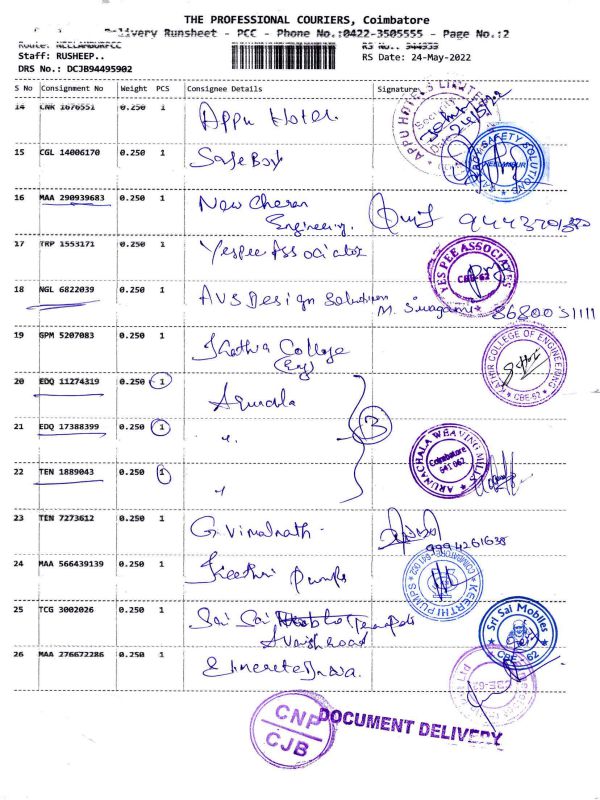 THE PROFESSIONAL COURIERS, Coimbatore
Delivery Runsheet - PCC - Phone No.:0422-3505555 - Page No.:2
Route: NEELAMBURPCC
RS No.: 944959
Staff: RUSHEEP..
RS Date: 24-May-2022
DRS No.: DCJB94495902
S No Consignment No Weight PCS Consignee Details Signature
14 CNR 1676551 0.250 1 Appu Hotel
15 CGL 14006170 0.250 1 Safe Boy
16 MAA 290939683 1 New Cheran
Engineering.
17 TRP 1553171 0.250 1 Yespee Associator
YES PEE ASSOCIATES
CBE-62
18 NGL 6822039 0.250 1 AVS Design Solution
M. Sivagami 8680031111
19 GPM 5207083 0.250 1 Kathir College
(Eng)
KATHIR COLLEGE OF ENGINEERING
CBE-62
20 EDQ 11274319 0.250 1
21 EDQ 17388399 0.250 1 "
3
ARUNACHALA WEAVING MILLS
Coimbatore
641 062
22 TEN 1889043 0.250 1 "
23 TEN 7273612 0.250 1 G. Vimalnath.
9994261638
24 MAA 566439139 0.250 1 Keethi Pumps
KEERTHI PUMPS
COIMBATORE-641 062
25 TCG 3002026 0.250 1 Sai Sai
Avanishi road
Sri Sai Mobiles
CBE-62
26 MAA 276672286 0.250 1
CBE-62
CNP
CJB
DOCUMENT DELIVERY